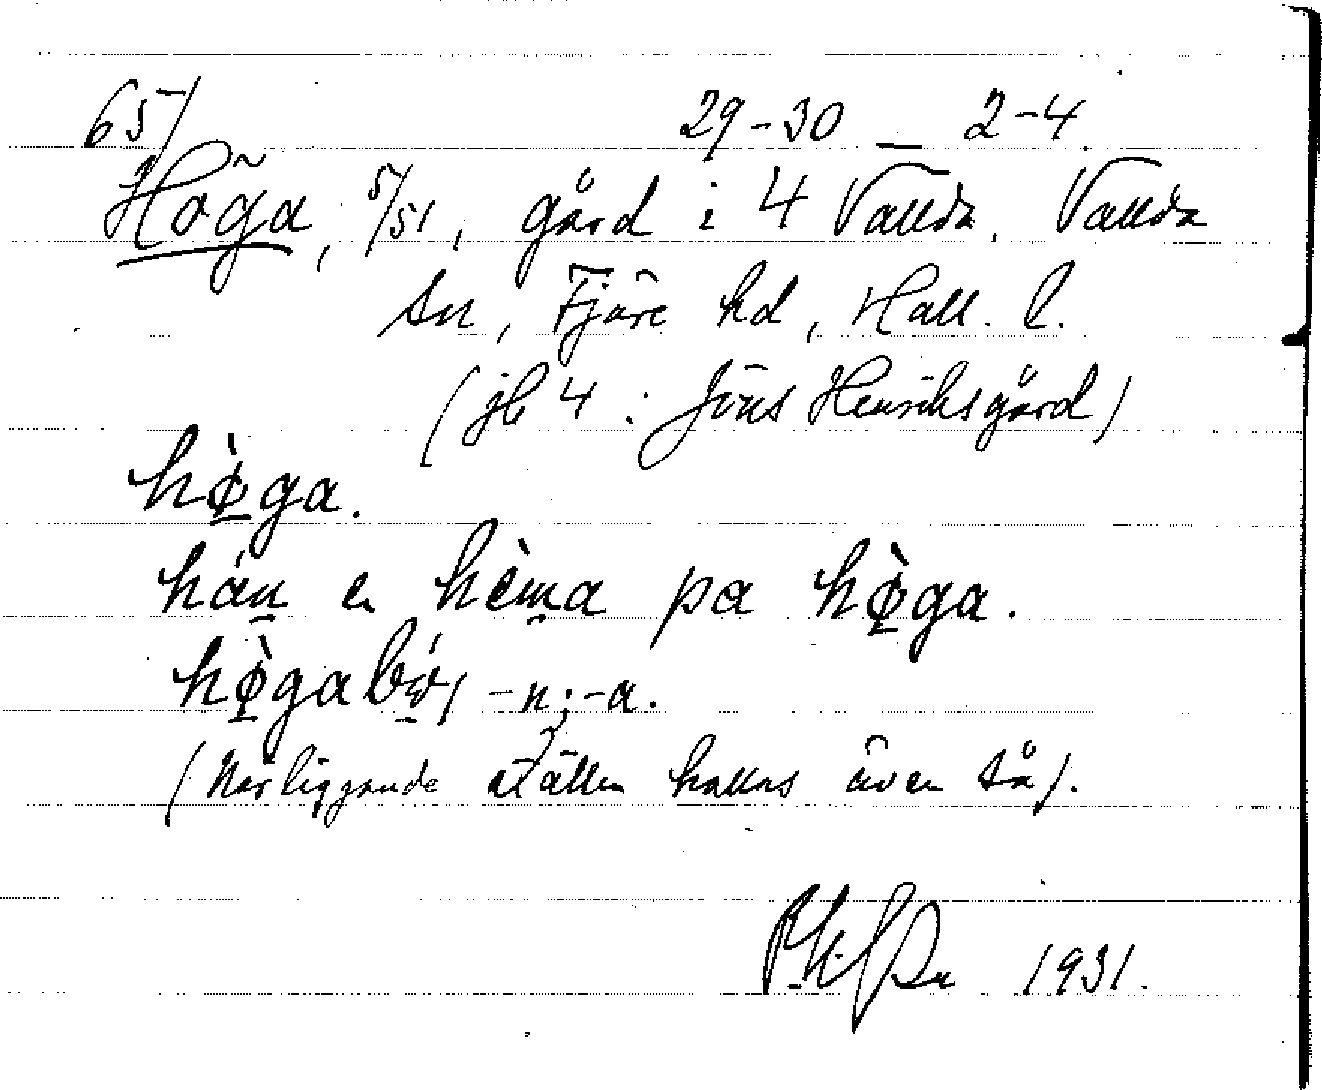 65/ 29-30 _ 2-4.
Höga, 5/51, gård i 4 Vallda, Vallda
sn, Fjäre hd, Hall. l.
(jb 4: Jöns Henriksgård)
hø̀ga.
hán e hèma pa hø̀ga.
hø̀ga -n; -a.
(Närliggande ställen kallas även så).
1931.